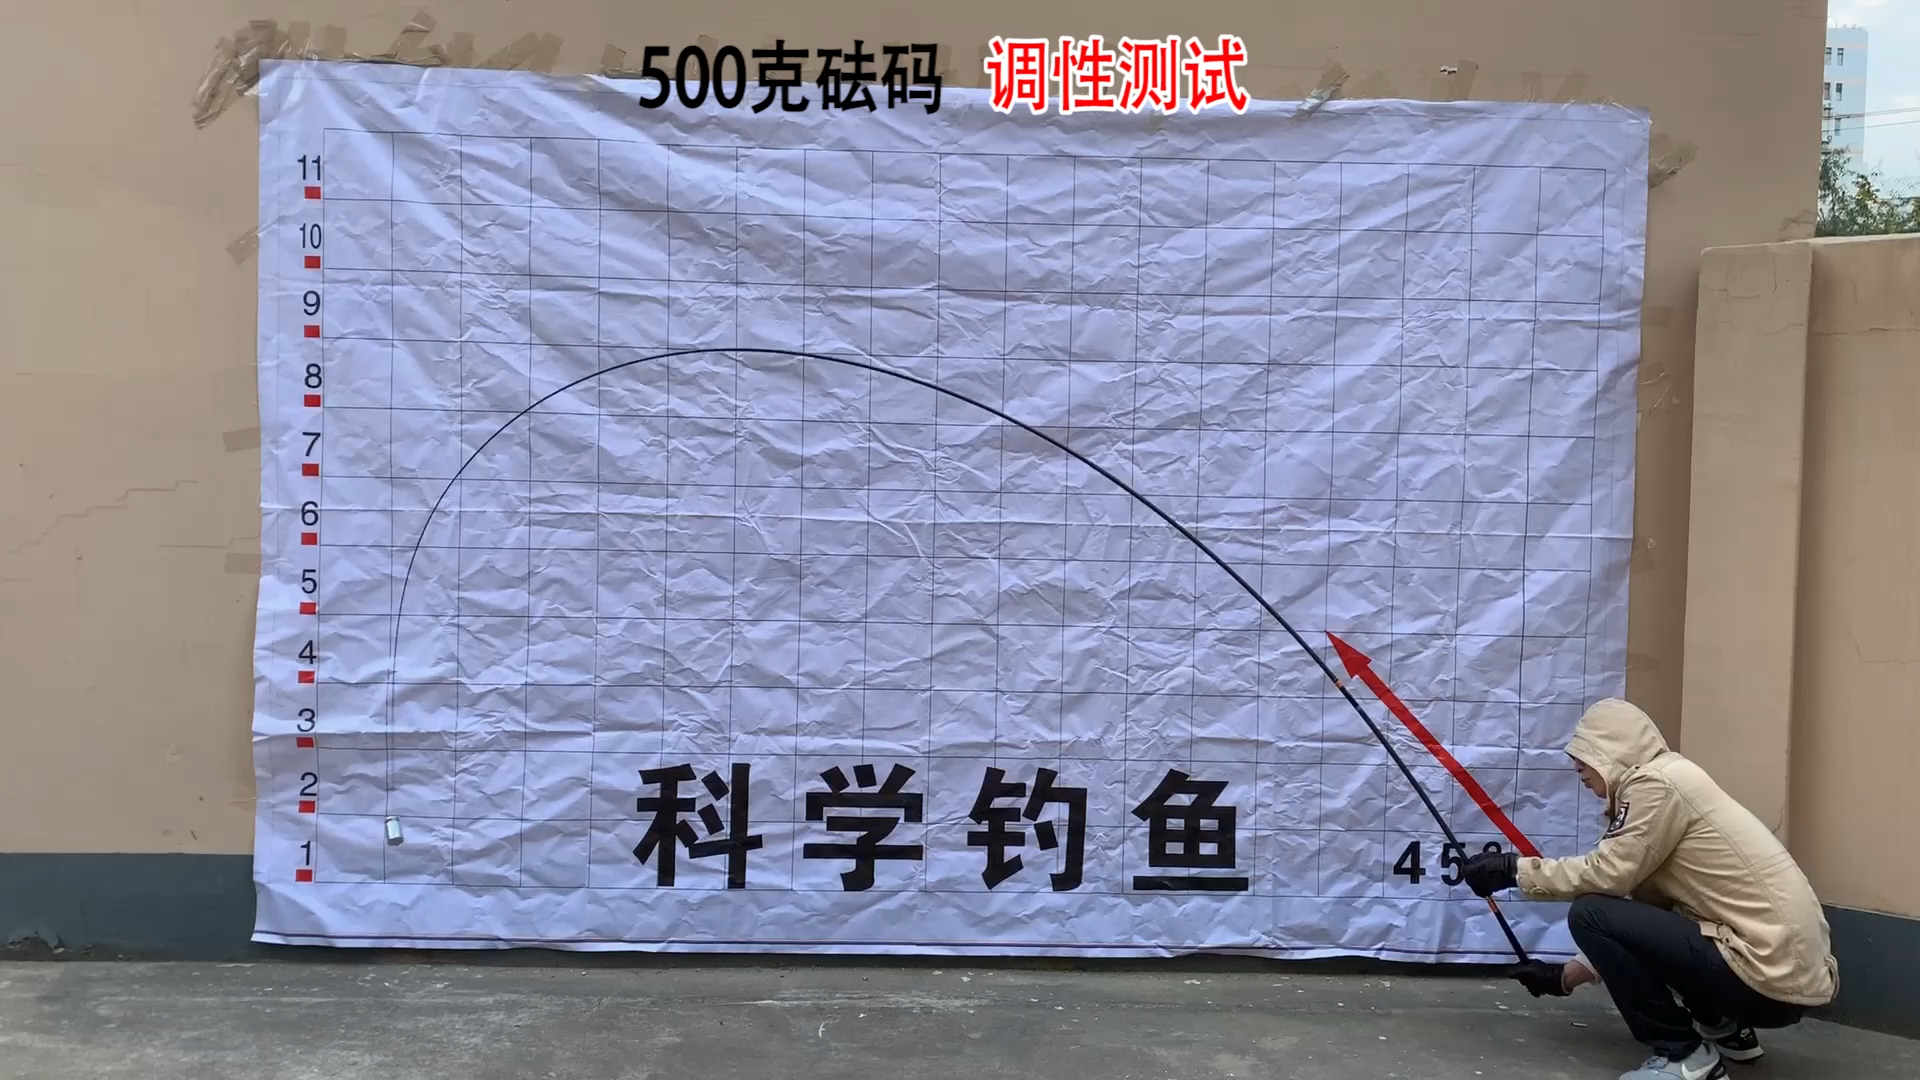 500克砝码 调性测试
11
10
9
8
7
6
5
4
3
2
1
科学钓鱼
45